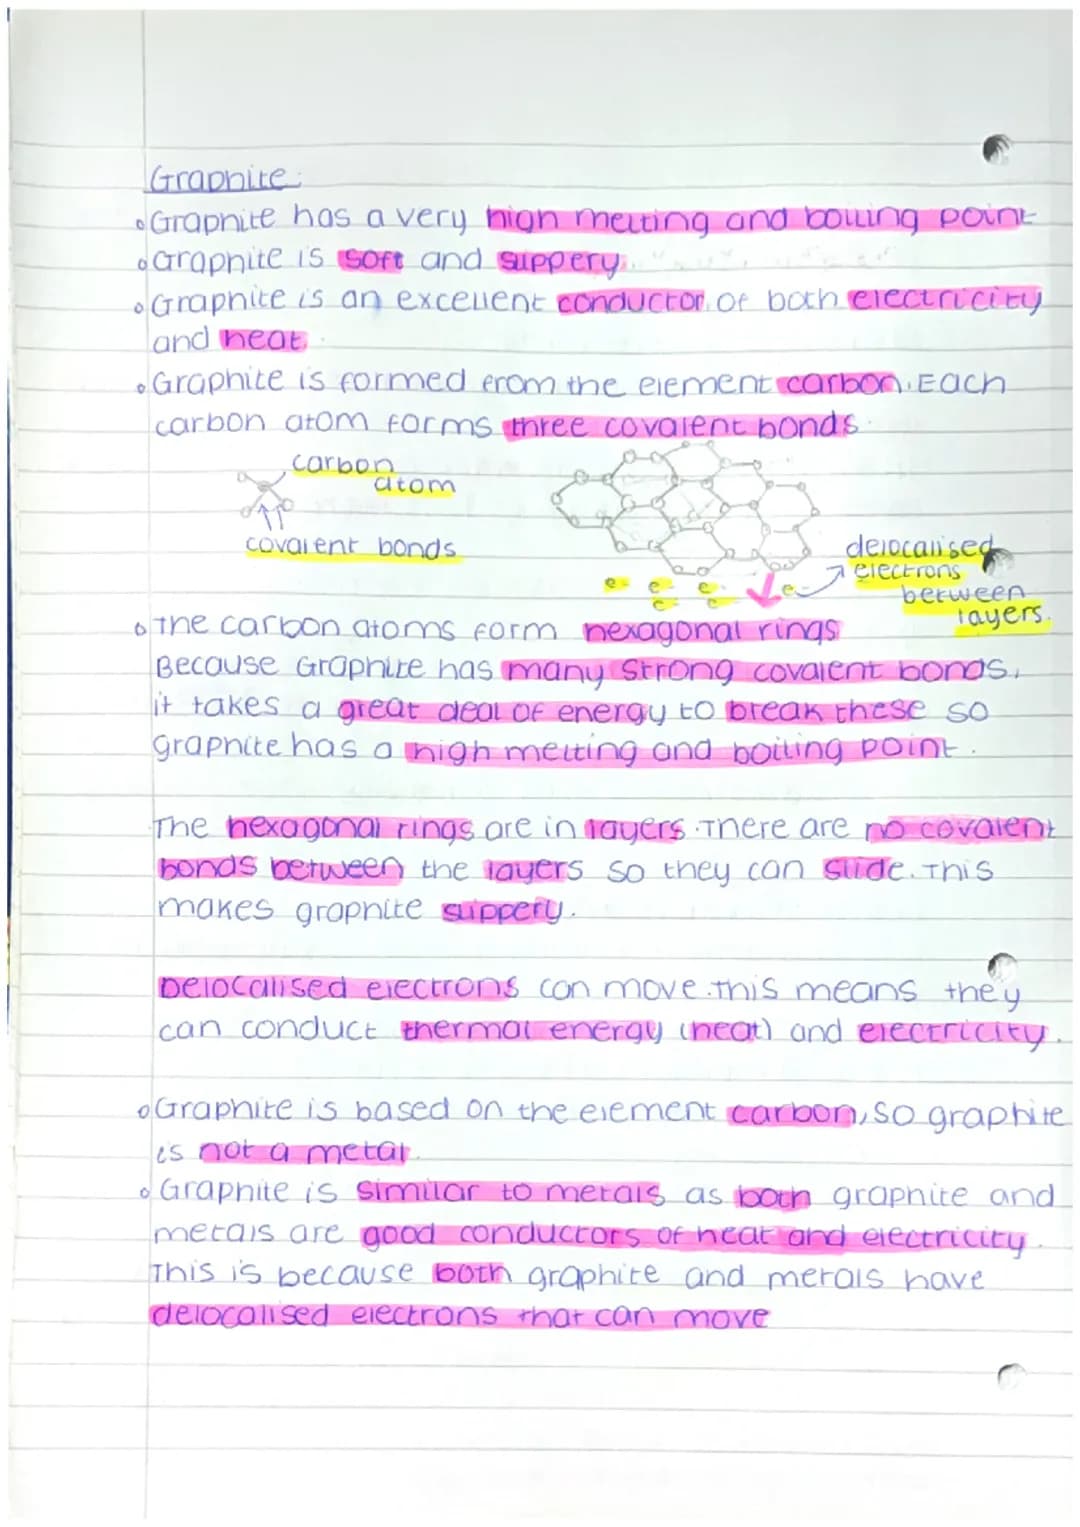 Graphite:
Graphite has a very high melting and boiling point
Graphite is soft and slippery.
Graphite is an excellent conductor of both electricity
and heat.
Graphite is formed from the element carbon. Each
carbon atom forms three covalent bonds.
carbon
atom
covalent bonds
delocalised
electrons
between
layers.
e- e- e- e-
e- e-
The carbon atoms form hexagonal rings
Because Graphite has many strong covalent bonds,
it takes a great deal of energy to break these so
graphite has a high melting and boiling point.
The hexagonal rings are in layers. There are no covalent
bonds between the layers so they can slide. This
makes graphite slippery.
Delocalised electrons can move. This means they
can conduct thermal energy (heat) and electricity.
Graphite is based on the element carbon, so graphite
is not a metal.
Graphite is similar to metals as both graphite and
metals are good conductors of heat and electricity.
This is because both graphite and metals have
delocalised electrons that can move